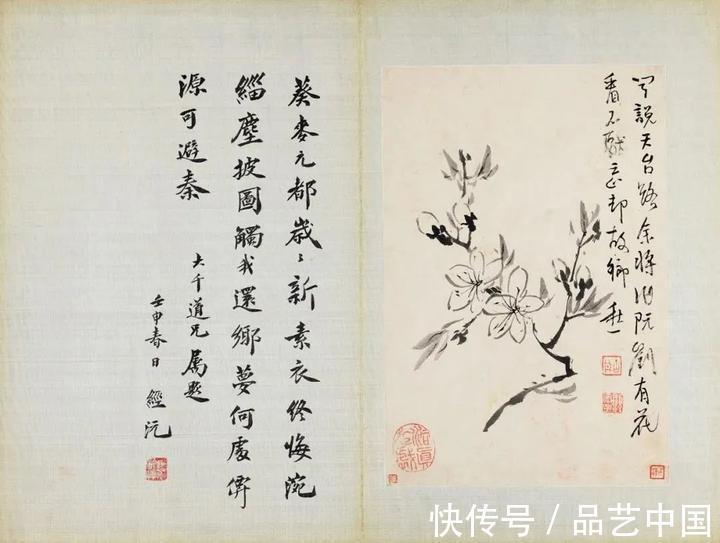 說天台路余將訪阮劉有花
看不厭忘却故鄉秋
葵麥元都歲〻新素衣終悔涴
緇塵披圖觸我還鄉夢何處僊
源可避秦
大千道兄屬題
壬申春日 經沅
快传号 / 品艺中国